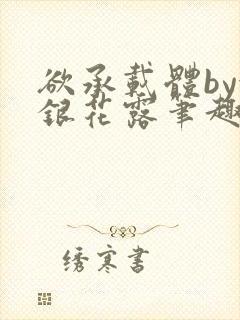 欲承载體by
銀花露筆趣
绣寒書